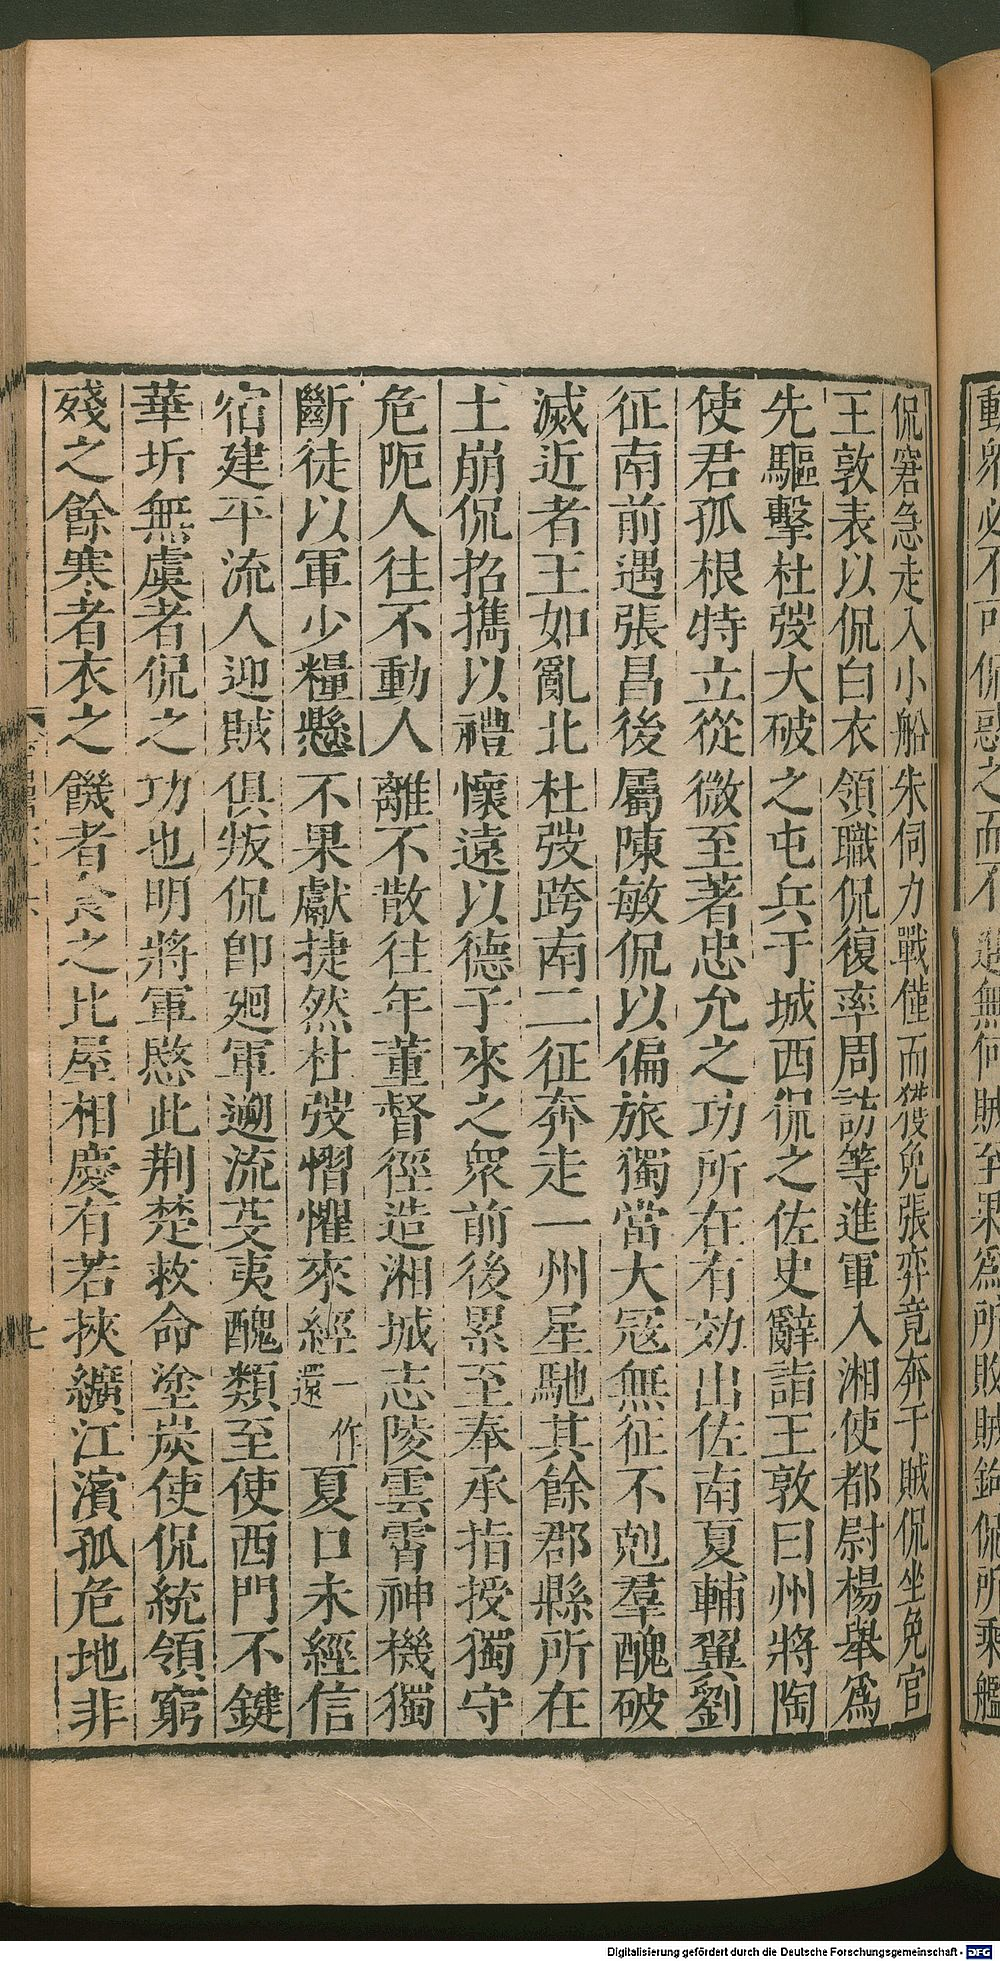 侃窘急走入小船朱伺力戰僅而獲免張弈竟奔于賊侃坐免官
王敦表以侃白衣領職侃復率周訪等進軍入湘使都尉楊舉爲
先驅擊杜弢大破之屯兵于城西侃之佐史辭詣王敦曰州將陶
使君孤根特立從微至著忠允之功所在有効出佐南夏輔翼劉
征南前遇張昌後屬陳敏侃以偏旅獨當大寇無征不剋羣醜破
滅近者王如亂北杜弢跨南二征奔走一州星馳其餘郡縣所在
土崩侃招攜以禮懷遠以德子來之衆前後累至奉承指授獨守
危阨人往不動人離不散往年董督徑造湘城志陵雲霄神機獨
斷徒以軍少糧懸不果獻捷然杜弢慴懼來經一作還夏口未經信
宿建平流人迎賊俱叛侃卽廻軍遡流芟夷醜類至使西門不鍵
華圻無虞者侃之功也明將軍愍此荆楚救命塗炭使侃統領窮
殘之餘寒者衣之饑者食之比屋相慶有若挾纊江濱孤危地非
七
Digitalisierung gefördert durch die Deutsche Forschungsgemeinschaft - DFG